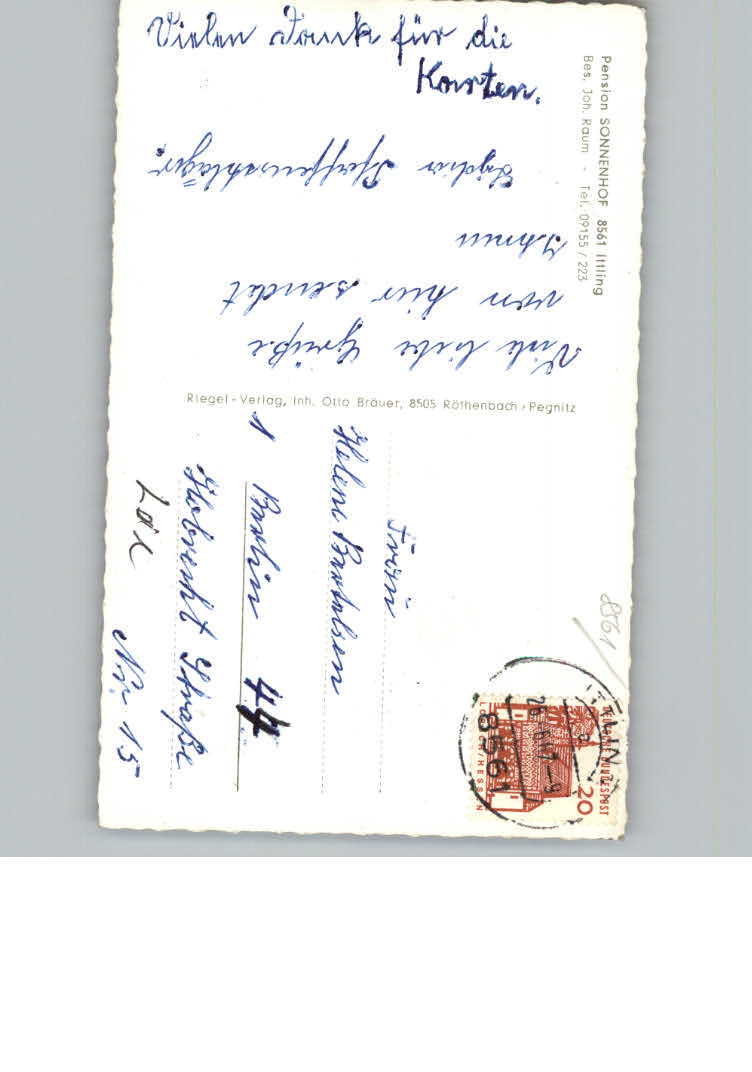 Vielen Dank für die
Karten.
Pension SONNENHOF 8561 Ittling
Bes. Joh. Raum - Tel. 09155 / 223
Viele liebe Grüße
von hier sendet
Ihnen
Lydia Pfaffenschläger.
Riegel-Verlag, Inh. Otto Bräuer, 8505 Röthenbach/Pegnitz
Frau
Helene Bertelsen
1 Berlin 44
Hobrecht Straße
Nr. 15
8561
DEUTSCHE BUNDESPOST
20
LORSCH/HESSEN
8561